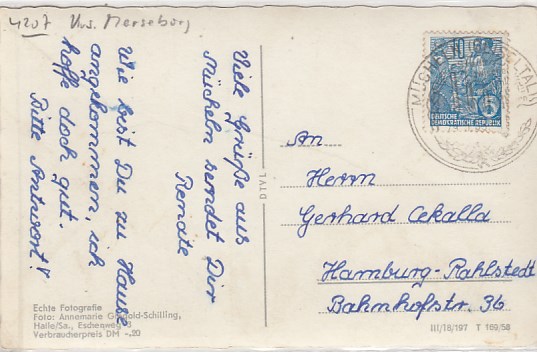 4207 Krs. Merseburg
Viele Grüße aus
Mücheln sendet Dir
Renate
Wie bist Du zu Hause
angekommen, ich
hoffe doch gut.
Bitte Antwort!
10
5
DEUTSCHE
DEMOKRATISCHE REPUBLIK
MÜCHELN GEISELTAL
An
Herrn
Gerhard Cekalla
Hamburg-Rahlstedt
Bahnhofstr. 36
DLVD
Echte Fotografie
Foto: Annemarie Giegold-Schilling,
Halle/Sa., Eschenweg 3
Verbraucherpreis DM -.20
III/18/197 T 169/58